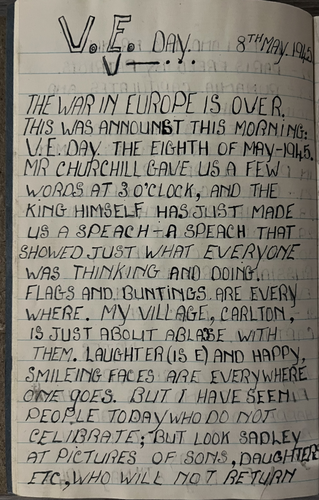 V.E. DAY. 8TH MAY. 1945
V—...
THE WAR IN EUROPE IS OVER.
THIS WAS ANNOUNST THIS MORNING:
V.E. DAY. THE EIGHTH OF MAY-1945.
MR CHURCHILL GAVE US A FEW
WORDS AT 3 O'CLOCK, AND THE
KING HIMSELF HAS JUST MADE
US A SPEACH-A SPEACH THAT
SHOWED JUST WHAT EVERYONE
WAS THINKING AND DOING.
FLAGS AND BUNTINGS ARE EVERY
WHERE. MY VILLAGE, CARLTON,
IS JUST ABOUT ABLASE WITH
THEM. LAUGHTER (IS E) AND HAPPY,
SMILEING FACES ARE EVERYWHERE
ONE GOES. BUT I HAVE SEEN
PEOPLE TODAY WHO DO NOT
CELIBRATE; BUT LOOK SADLEY
AT PICTURES OF SONS, DAUGHTERS
ETC, WHO WILL NOT RETURN